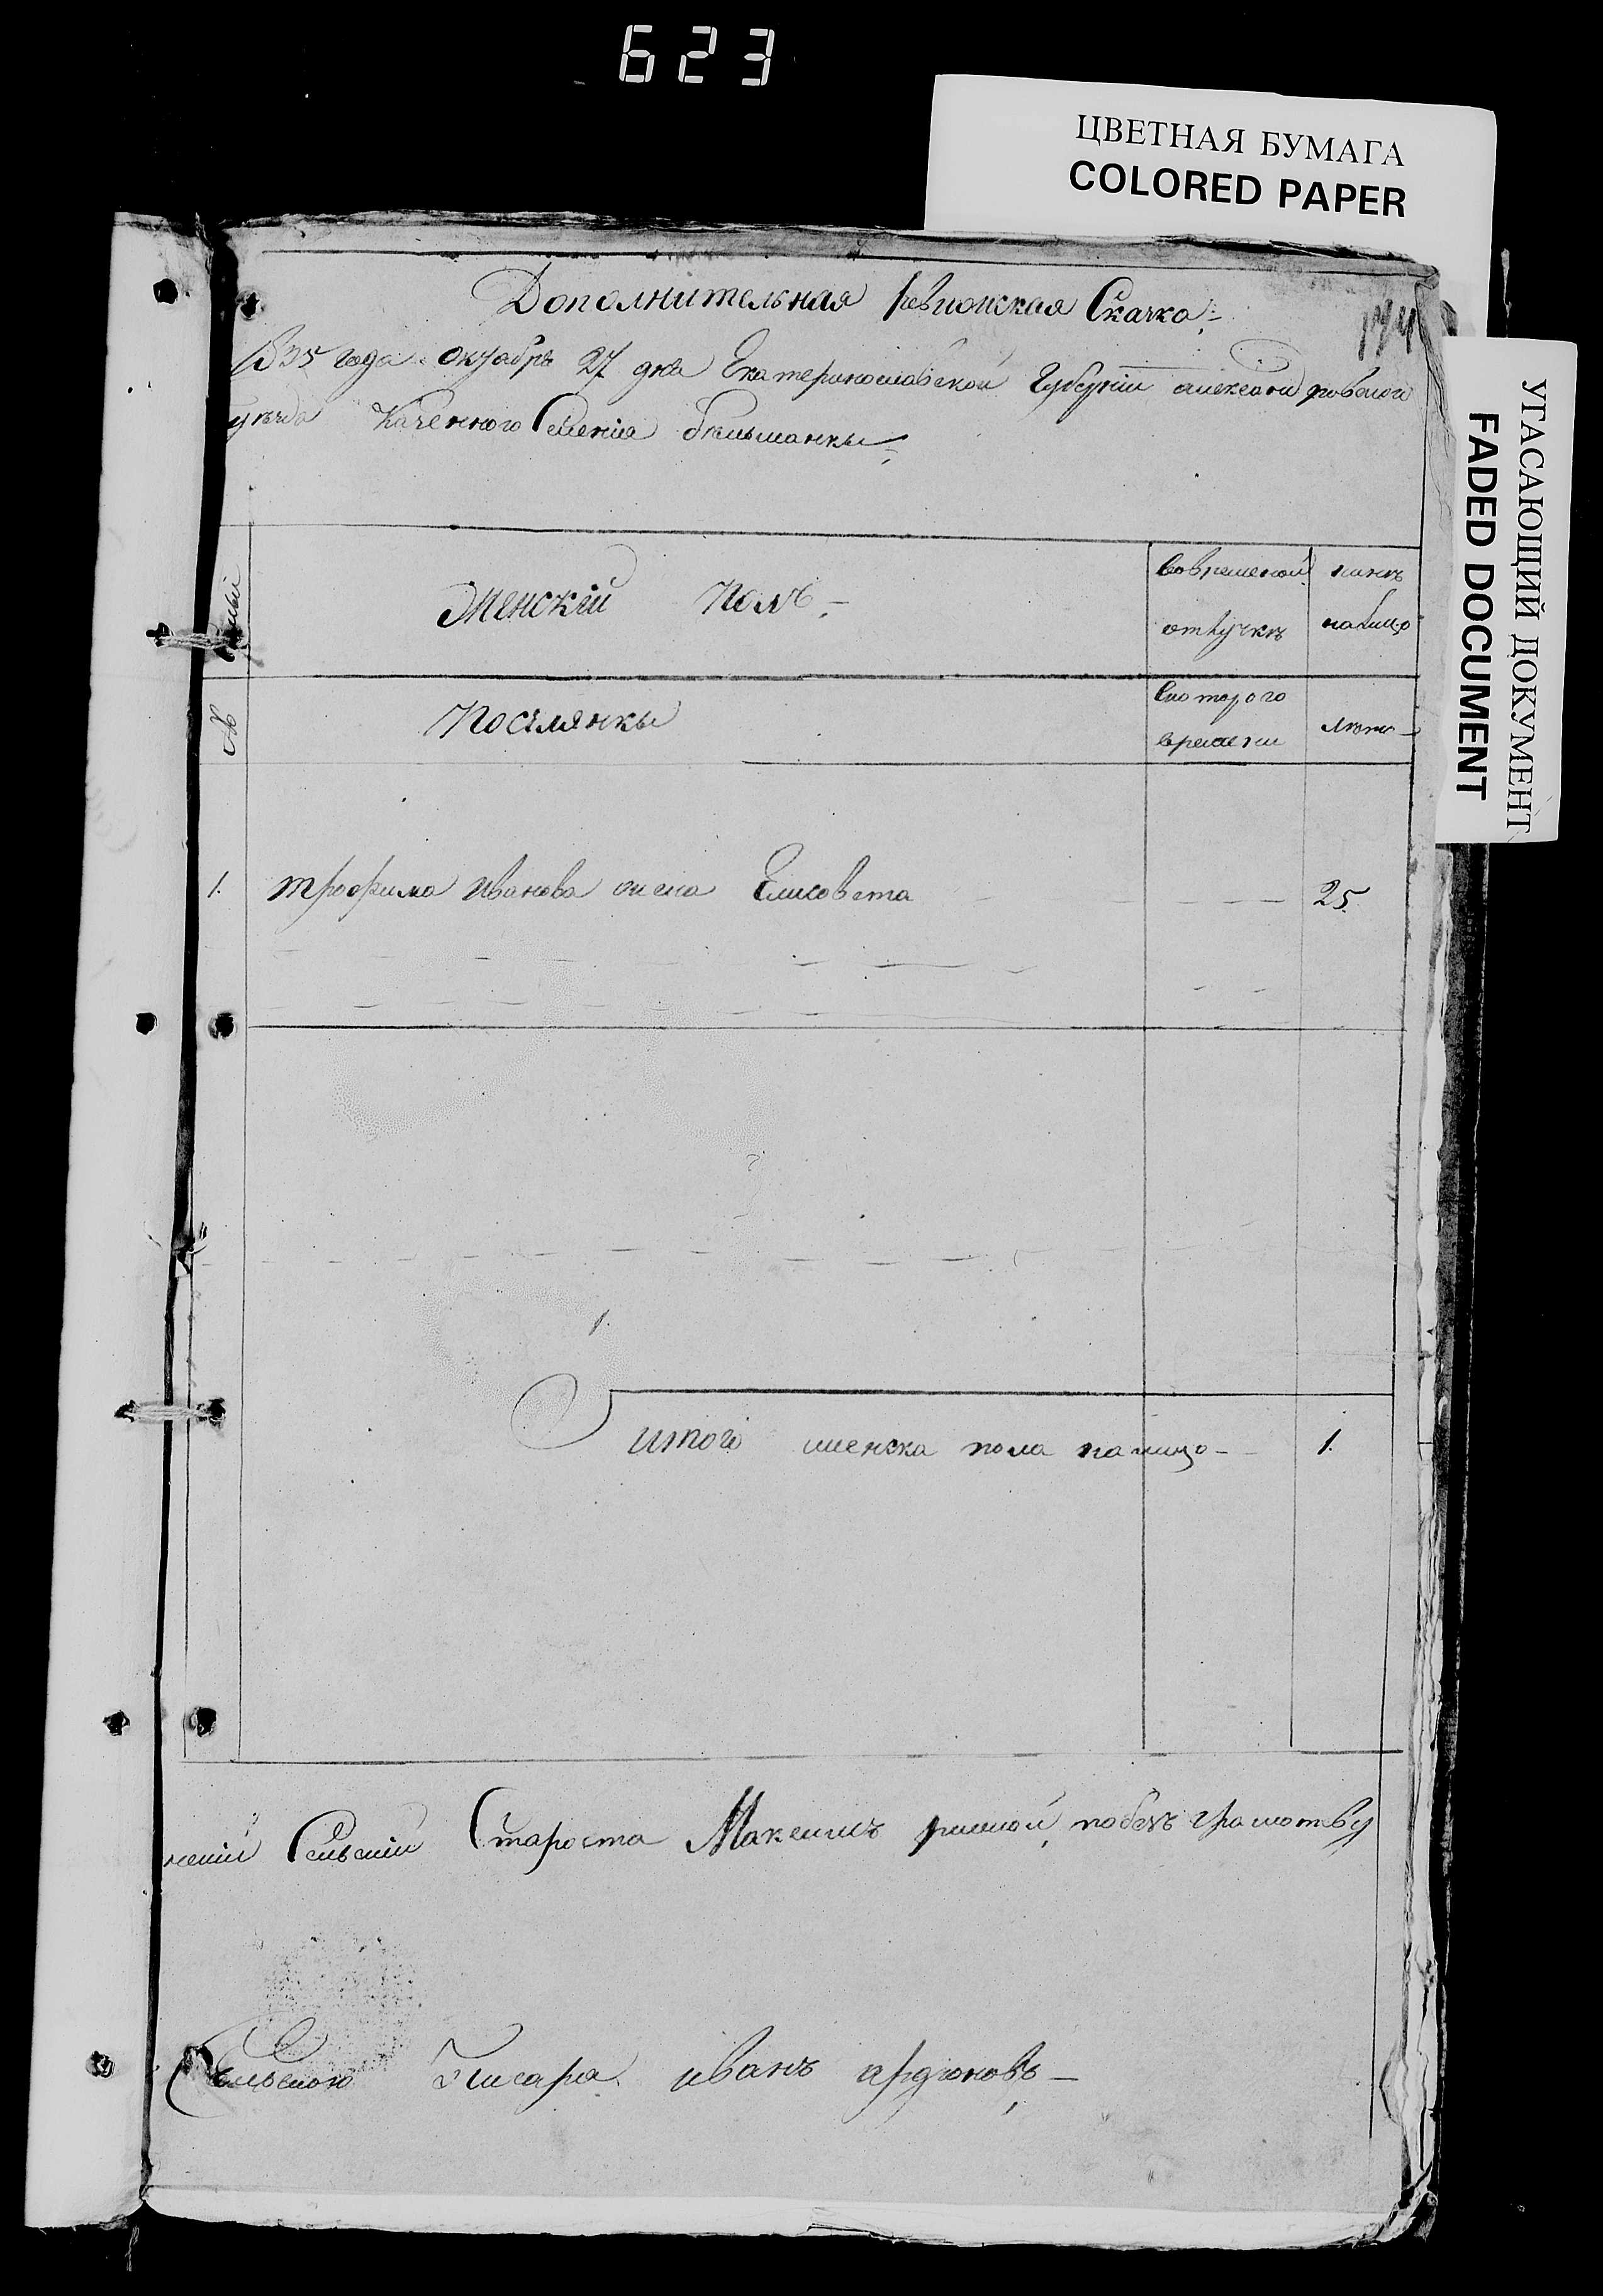 623
ЦВЕТНАЯ БУМАГА
COLORED PAPER
УГАСАЮЩИЙ ДОКУМЕНТ
FADED DOCUMENT
Дополнительная Ревизская Скаска
1835 года октября 27 дня Екатеринославской Губернии александровского
уезда Казенного Селения
Женскiй Полъ
вовременной отлучкѣ
нынѣ налицо
№
Поселянки
Скоторого времени
лета
1. трофима Иванова жена Елисовета 25
1.
итого женска пола налицо 1.
Сельскiй Староста Максимъ
Сельской Писарь иванъ